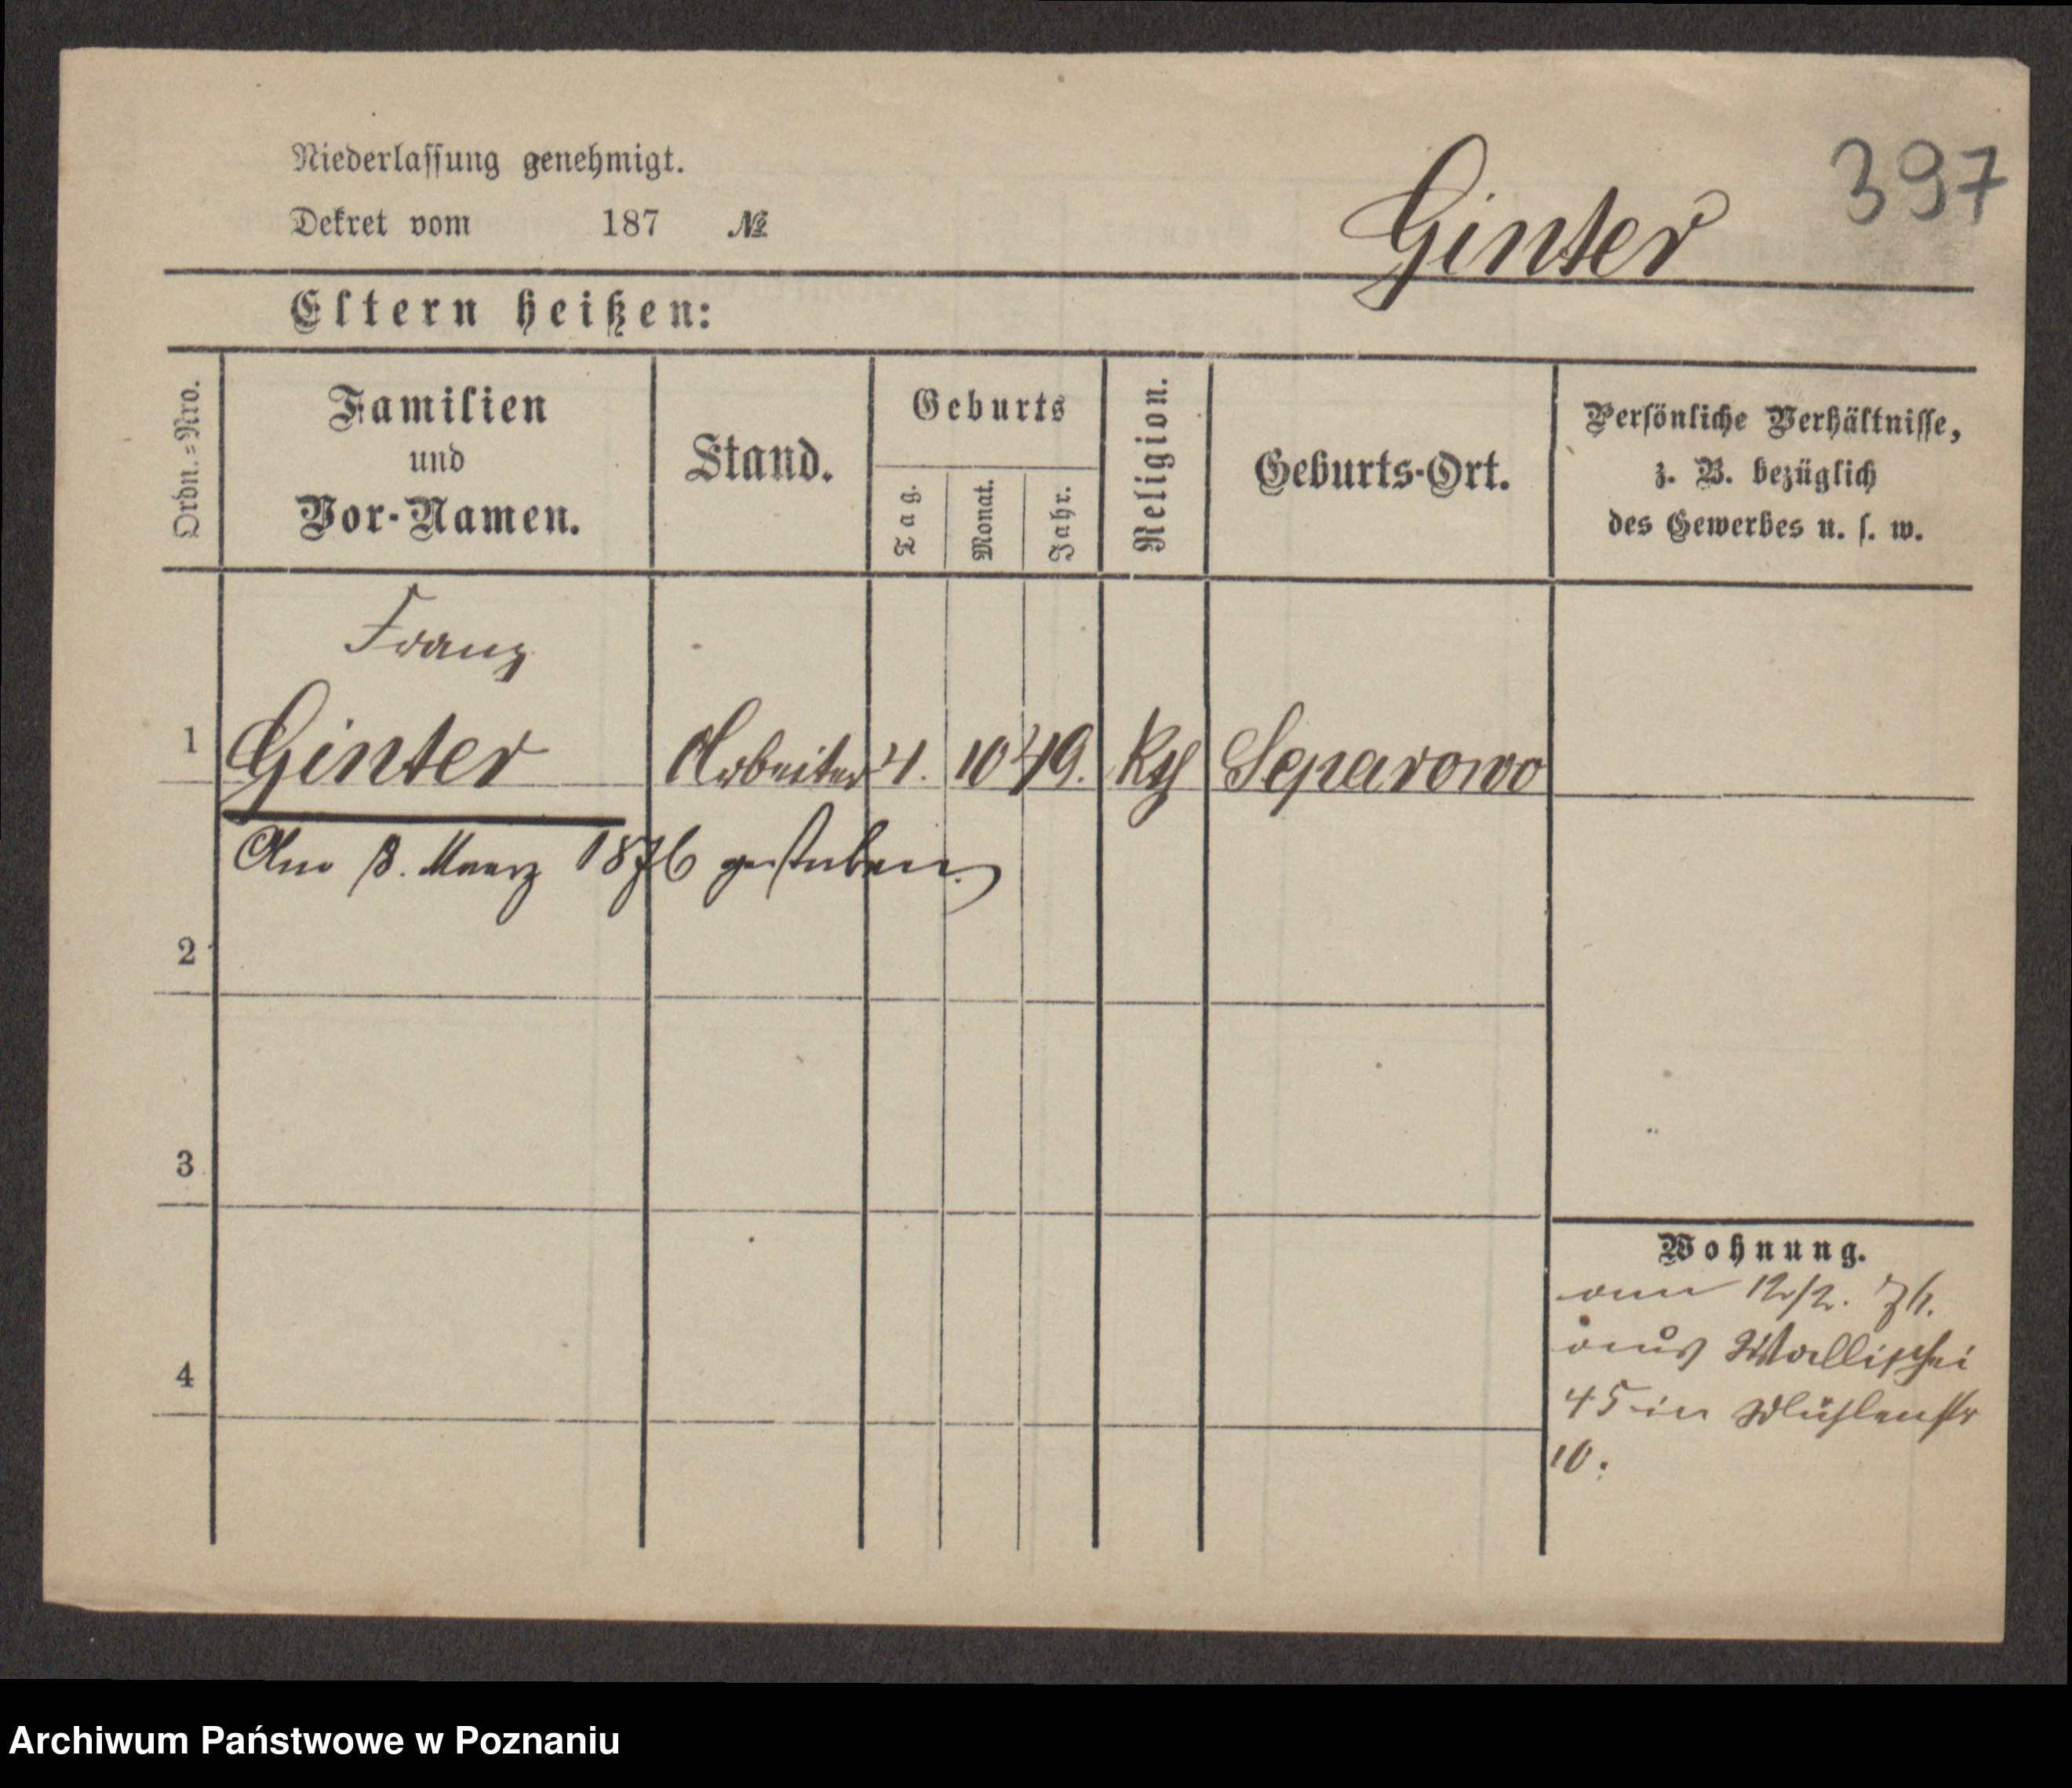 397
Niederlassung genehmigt.
Dekret vom 187 №
Ginter
Eltern heißen:
Ordn.-Nro.
Familien und Vor-Namen.
Stand.
Geburts
Tag.
Monat.
Jahr.
Religion.
Geburts-Ort.
Persönliche Verhältnisse,
z. B. bezüglich
des Gewerbes u. s. w.
Franz
1 Ginter Arbeiter 4. 10 49. Kth Separowo
Am 8. Maerz 1876 gestorben.
2
3
4
Wohnung.
am 12/2. 76.
aus Wallischei
45 in Mühlenstr
10.
Archiwum Państwowe w Poznaniu